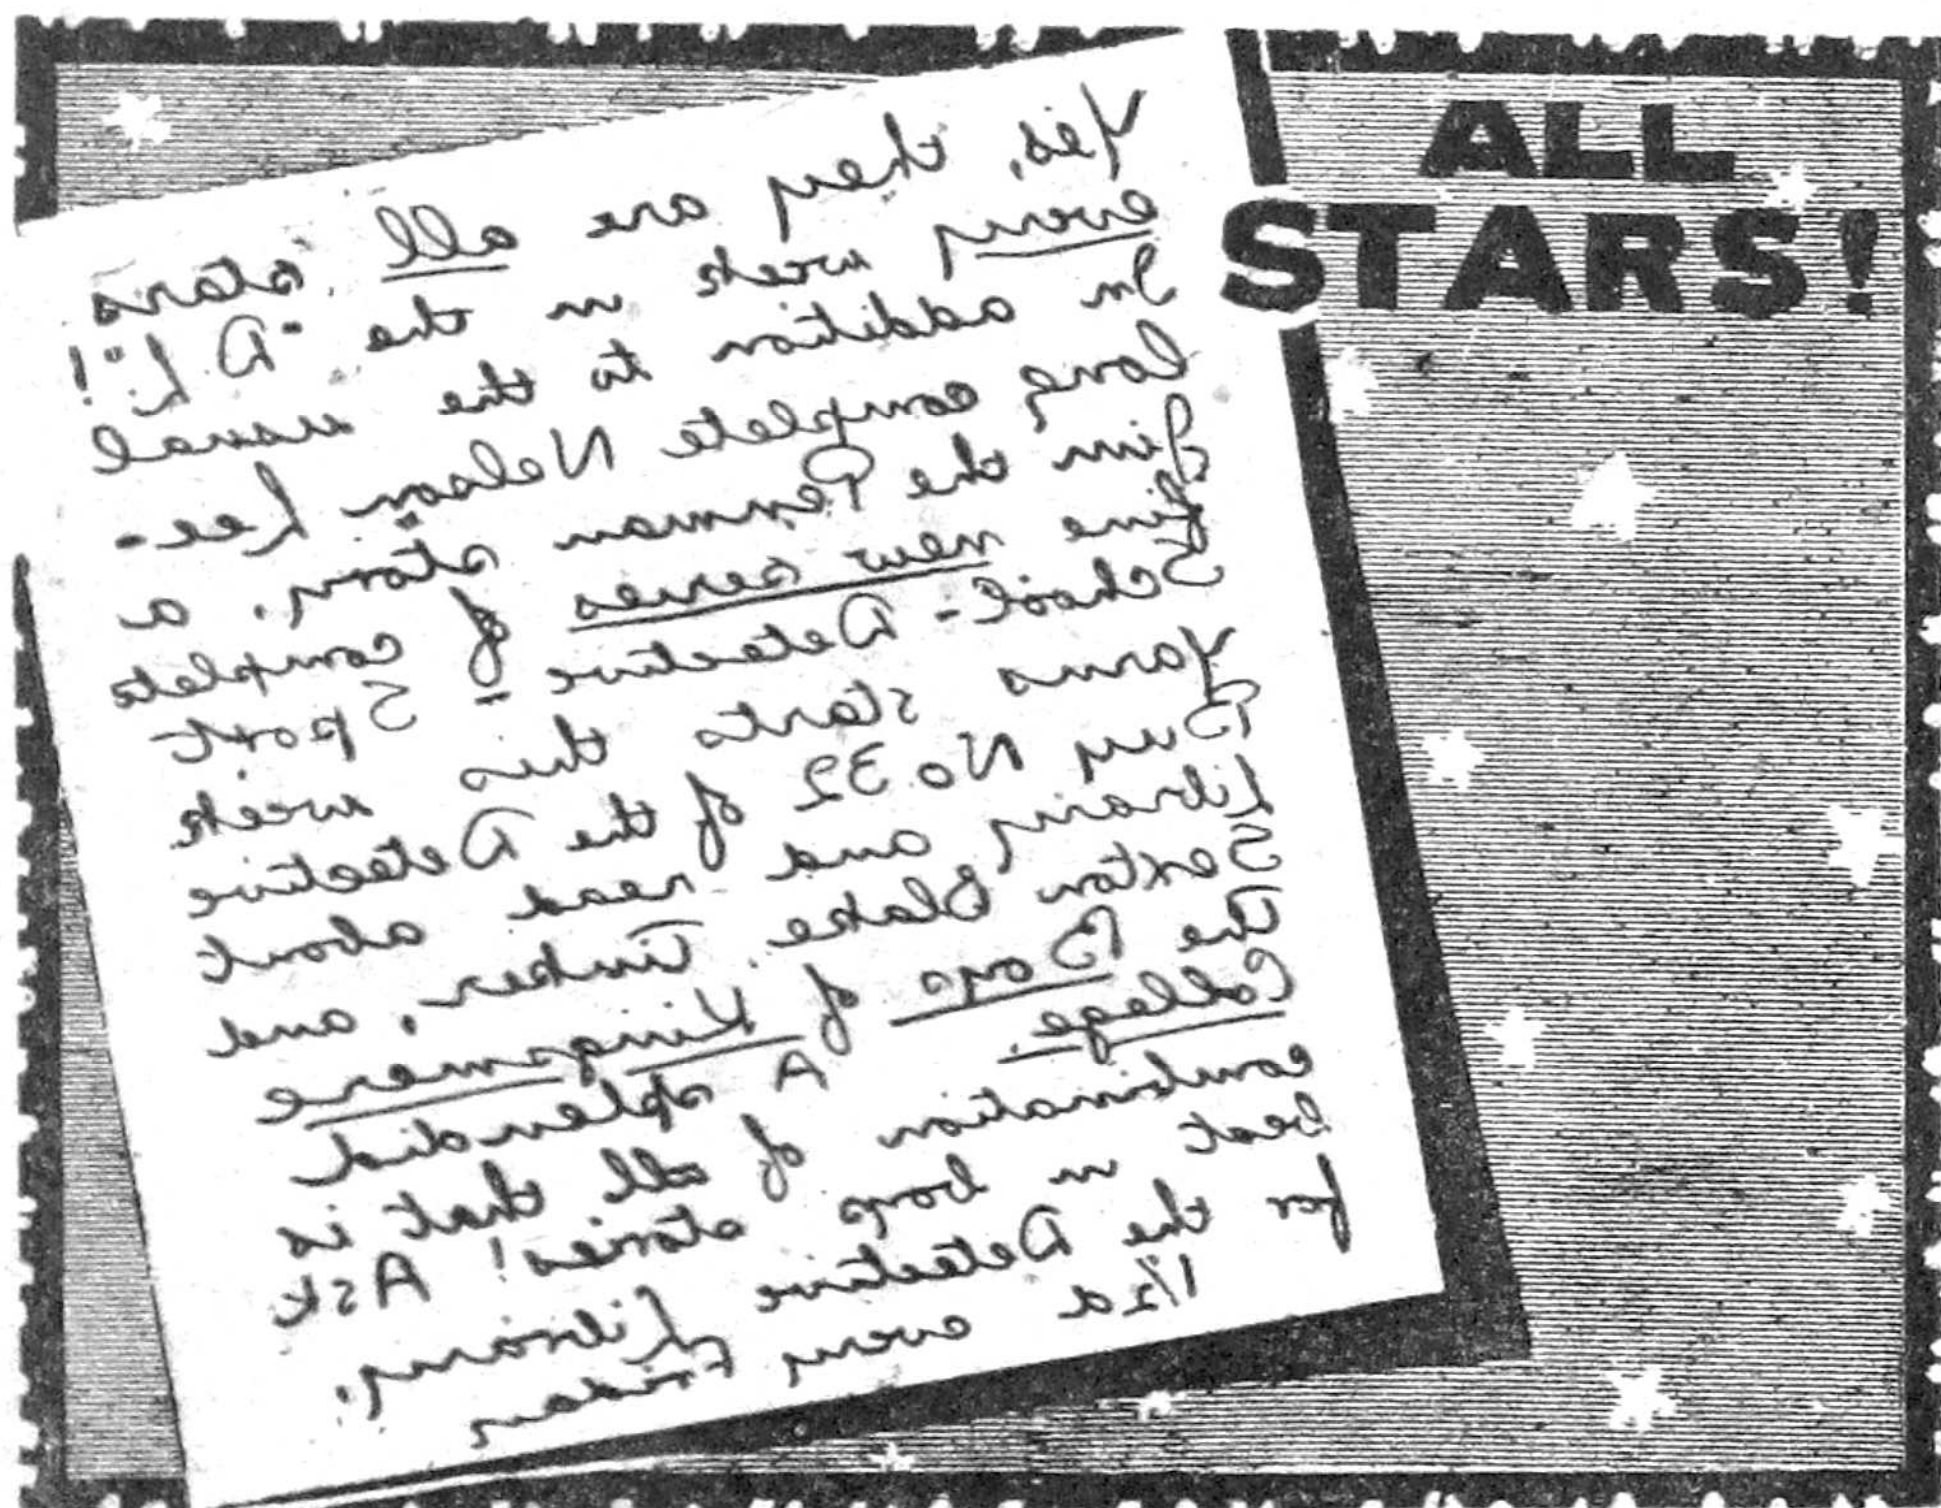 ALL
STARS!
Yes, they are all stars
every week in the "D.L."!
In addition to the usual
long complete Nelson Lee-
Jim the Penman story, a
fine new series of complete
School-Detective-Sport
Yarns starts this week
Buy No 32 of the Detective
Library and read about
Sexton Blake, Tinker, and
The Boys of Kingsmere
College. A splendid
combination of all that is
best in boys stories! Ask
for the Detective Library.
1/2d every Friday